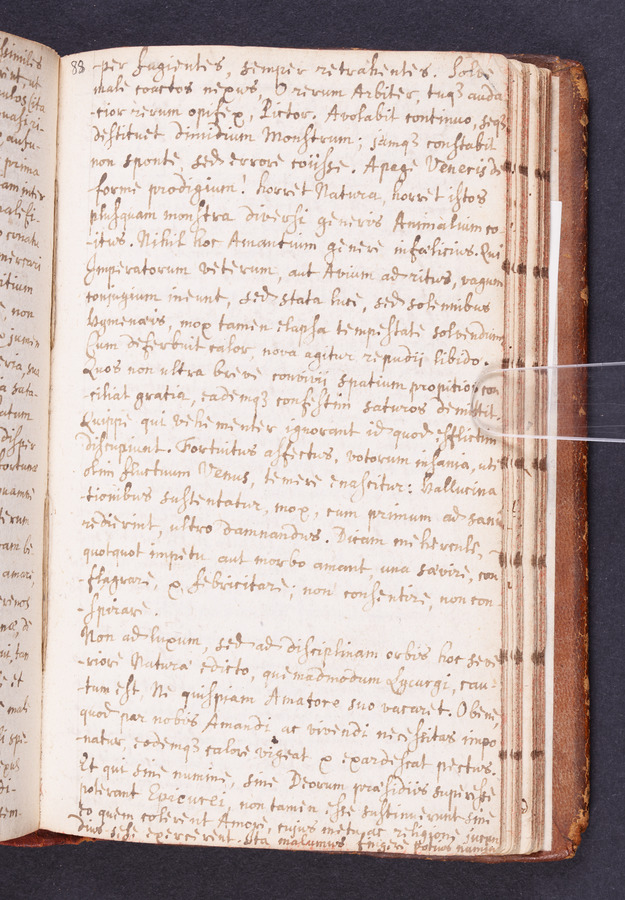 88
-per fugientes, semper retrahentes. Solve
male coactos nexus, O rerum Arbiter, tuqз auda
-cior rerum opifex, Pictor. Avolabit continuo, seqз
destituet dimidium Monstrum; jamqз constabit
non sponte, sed errore coiisse. Apage Veneris de
-forme prodigium! horret Natura, horret istos
plusquam monstra diversi generis Animalium co-
-itus. Nihil hoc Amantium genere infœlicius. Qui
Imperatorum veterum, aut Avium ad ritus, vagum
conjugium ineunt, sed stata luce, sed solemnibus
Hymenæis, mox tamen elapsa tempestate solvendum
Cum deferbuit calor, nova agitur repudij libido.
Quos non ultra breve convivij spatium propitior con
-ciliat gratia, eademqз confestim saturos demittit.
Quippe qui vehementer ignorant id quod efflictim
discupiunt. Fortuitus affectus, votorum insania, ut
olim fluctuum Venus, temere enascitur: Hallucina
-tionibus sustentatur, mox, cum primum ad sani
redierint, ultro damnandus. Dicam mehercule,
quotquot impetu aut morbo amant, una sævire, con
-flagrare, & febricitare; non consentire, non con-
-spirare.
Non ad luxum, sed ad disciplinam orbis hoc seve
-riore Naturæ edicto, quemadmodum Lycurgi, cau-
-tum est, Ne quispiam Amatore suo vacaret. O bene,
quod par nobis Amandi ac vivendi necessitas impo
-natur, eodemqз calore vigeat & exardescat pectus.
Et qui sine numine, sine Deorum præsidiis superesse
poterant Epicurei, non tamen esse sustinuerunt sine
eo quem colerent Amore, cujus metu ac religione jucun
dius sese exercerent. Ita malumus fingere potius numina